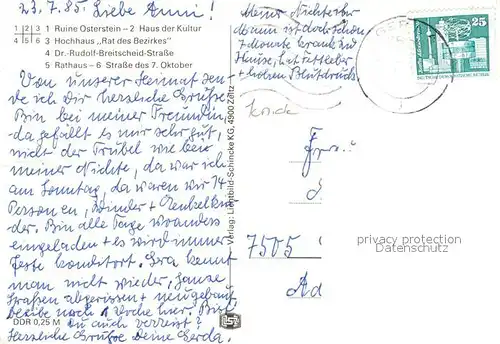 23.7.85 Liebe Anni!
1 2 3 1 Ruine Osterstein – 2 Haus der Kultur
4 5 6 3 Hochhaus „Rat des Bezirkes"
4 Dr.-Rudolf-Breitscheid-Straße
5 Rathaus – 6 Straße des 7. Oktober
Von unserer Heimat sen-
de ich Dir herzliche Grüße
Bin bei meiner Freundin,
da gefällt es mir sehr gut,
nicht der Trubel wie bei
meiner Nichte, da war ich
am Sonntag, da waren wir 14
Personen, Kinder + Urenkelkin-
der. Bin alle Tage woanders
eingeladen + es wird immer
feste konditort. Gera kennt
man nicht wieder, ganze
Straßen abgerissen + neugebaut
bleibe noch 1 Woche hier. Bist
Du auch verreist?
Herzliche Grüße Deine Gerda.
DDR 0,25 M
Verlag: Lichtbild-Schincke KG, 4900 Zeitz
Meiner Nichte ihr
Mann ist doch schon
7 Monate krank zu
Hause, hat Fettleber
+ hohen Blutdruck.
25
DDR
Frau
7505
privacy protection